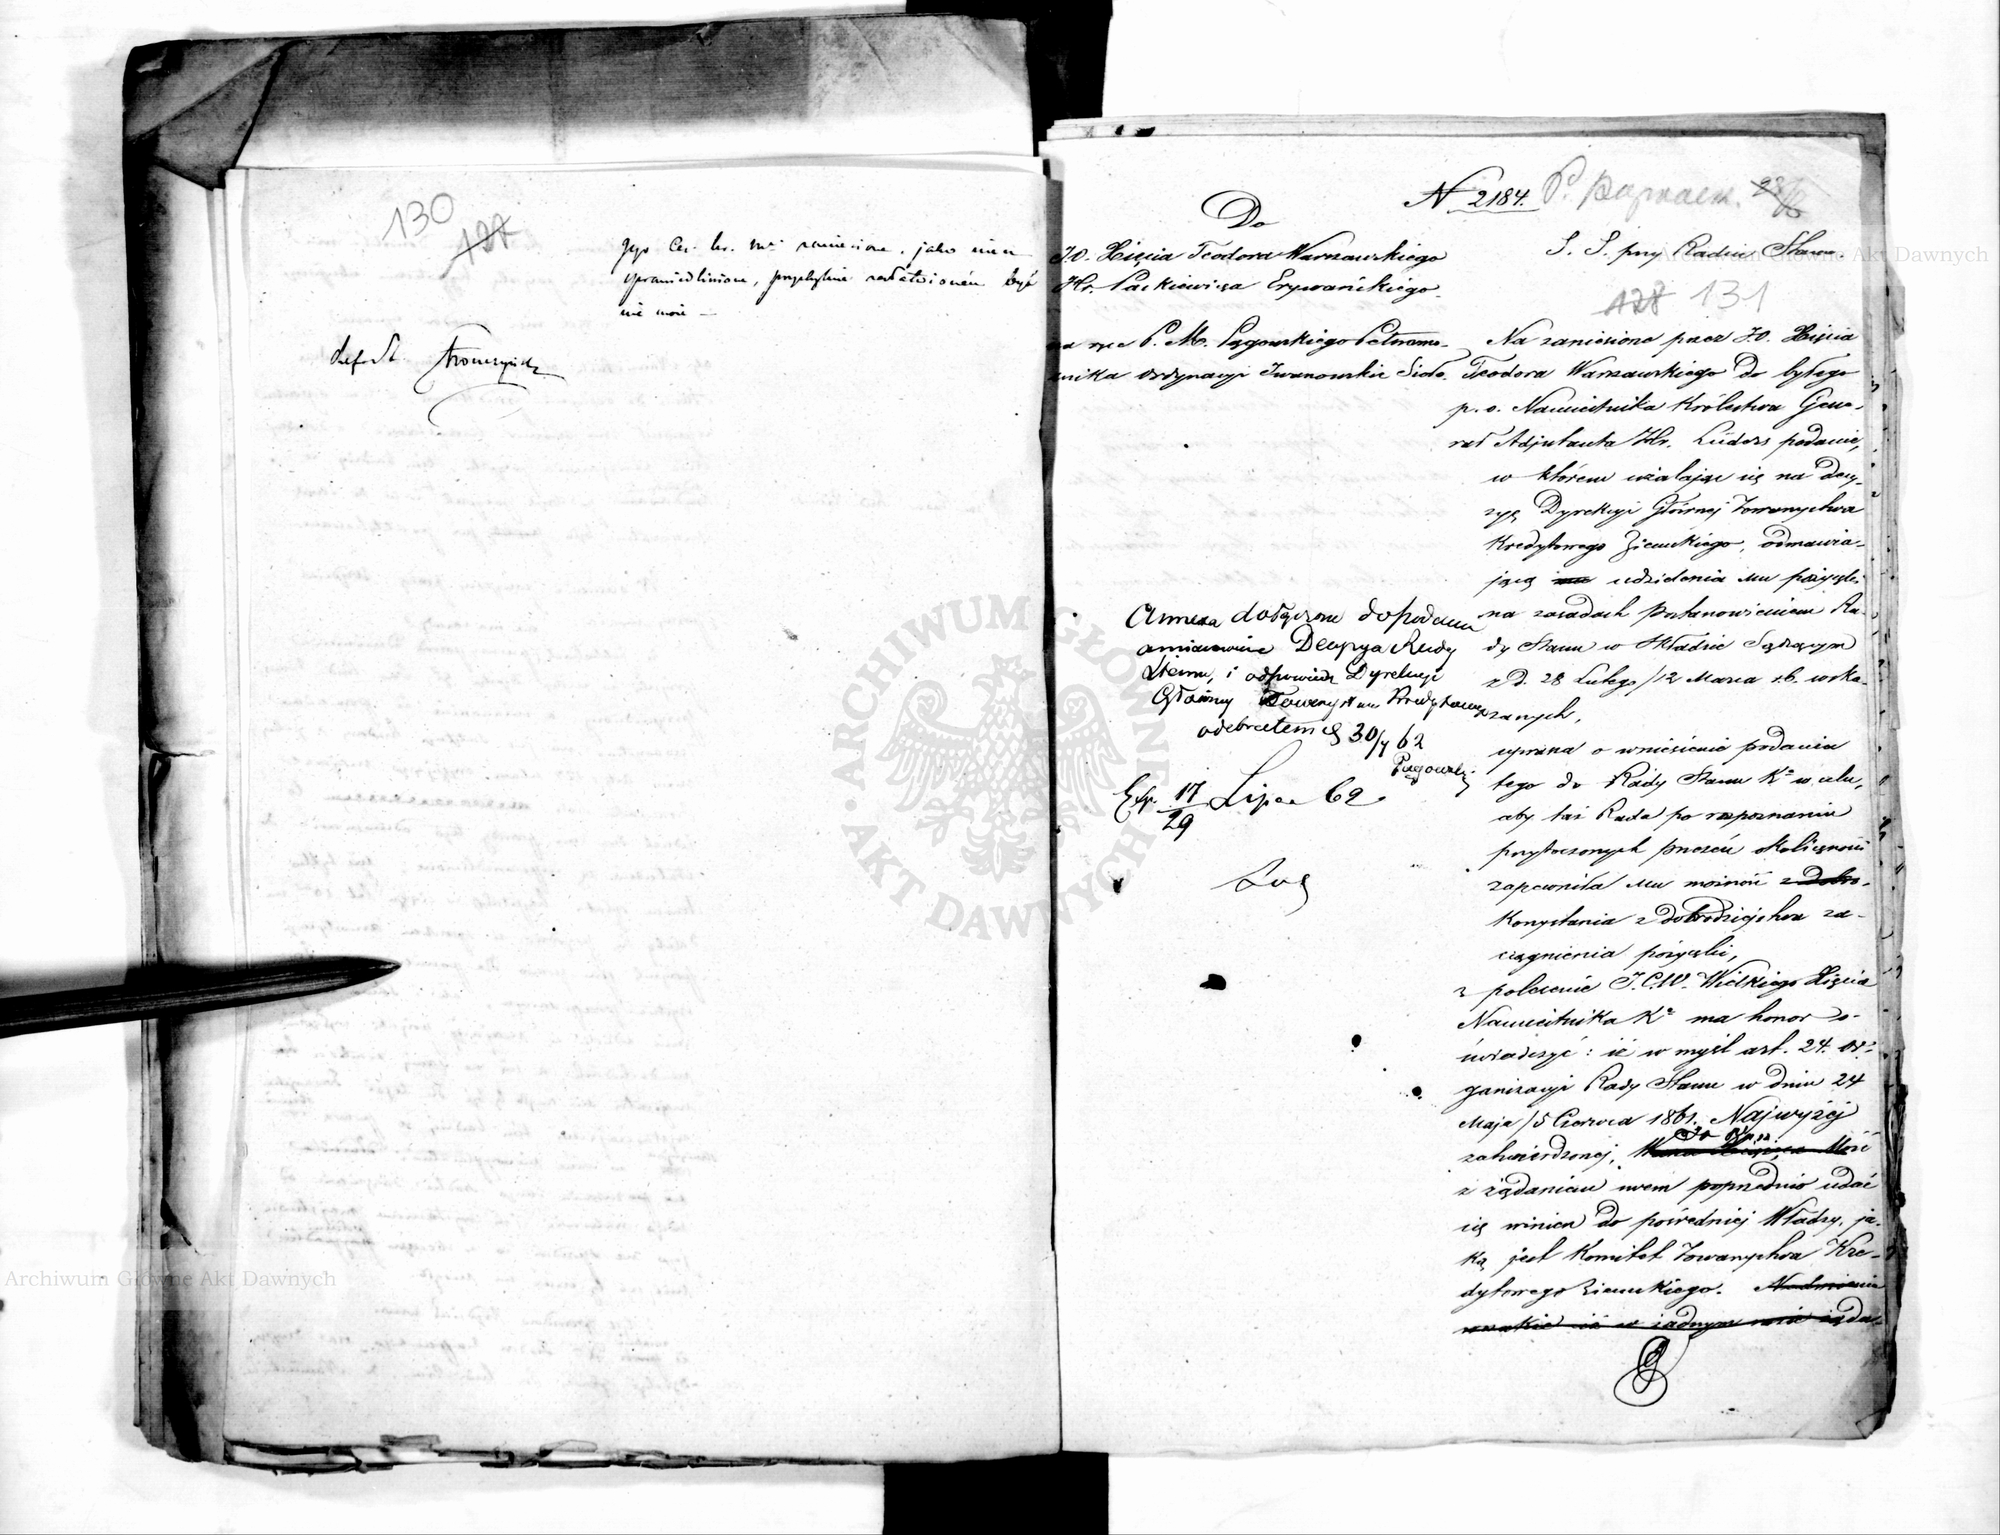 130
127
Jego Ces. Kr. Mci zaniesione, jako nieu
sprawiedliwione, przychylnie załatwionem być
nie może —
Ref. St.
N 2184.
Do
J.O. Xięcia Teodora Warszawskiego
Hr. Paskiewicza Erywańskiego.
na ręce P. M. Pągowskiego Pełnomo-
cnika Ordynacyi Iwanowskie Sioło.
S. S. przy Radzie Stanu
128 131
Na zaniesione przez J.O. Xięcia
Teodora Warszawskiego do byłego
p. o. Namiestnika Królestwa Gene-
rał Adjutanta Hr. Lüders podanie,
w którem użalając się na decy-
zyę Dyrekcyi Głównej Towarzystwa
Kredytowego Ziemskiego, odmawia-
jącą mu udzielenia mu pożyczki
na zasadach postanowieniem Ra-
dy Stanu w Składzie Sądzącym
z d. 28 Lutego/12 Marca r.b. wska-
zanych,
uprasza o wniesienie podania
tego do Rady Stanu Ka w celu,
aby taż Rada po rozpoznaniu
przytoczonych przezeń okoliczności
zapewniła mu możność z dobro-
korzystania z dobrodziejstwa za-
ciągnienia pożyczki,
z polecenia J.C.W. Wielkiego Xięcia
Namiestnika Ka ma honor o-
świadczyć: iż w myśl art. 24. or-
ganizacyi Rady Stanu w dniu 24
Maja/5 Czerwca 1861. Najwyżej
zatwierdzonej, Wasza Książęca Mość
z żądaniem swem poprzednio udać
się winien do pośredniej Władzy, ja-
ką jest Komitet Towarzystwa Kre-
dytowego Ziemskiego. Nadmienia
wszakże iż w żadnym razie żąda-
Annexa dołączone do podania
a mianowicie Decyzya Rady
Stanu, i odpowiedź Dyrekcyi
Głównej Towarzystwa Kredytowego
odebrałem d 30/7 62
Pągowski
Exp. 17/29 Lipca 62